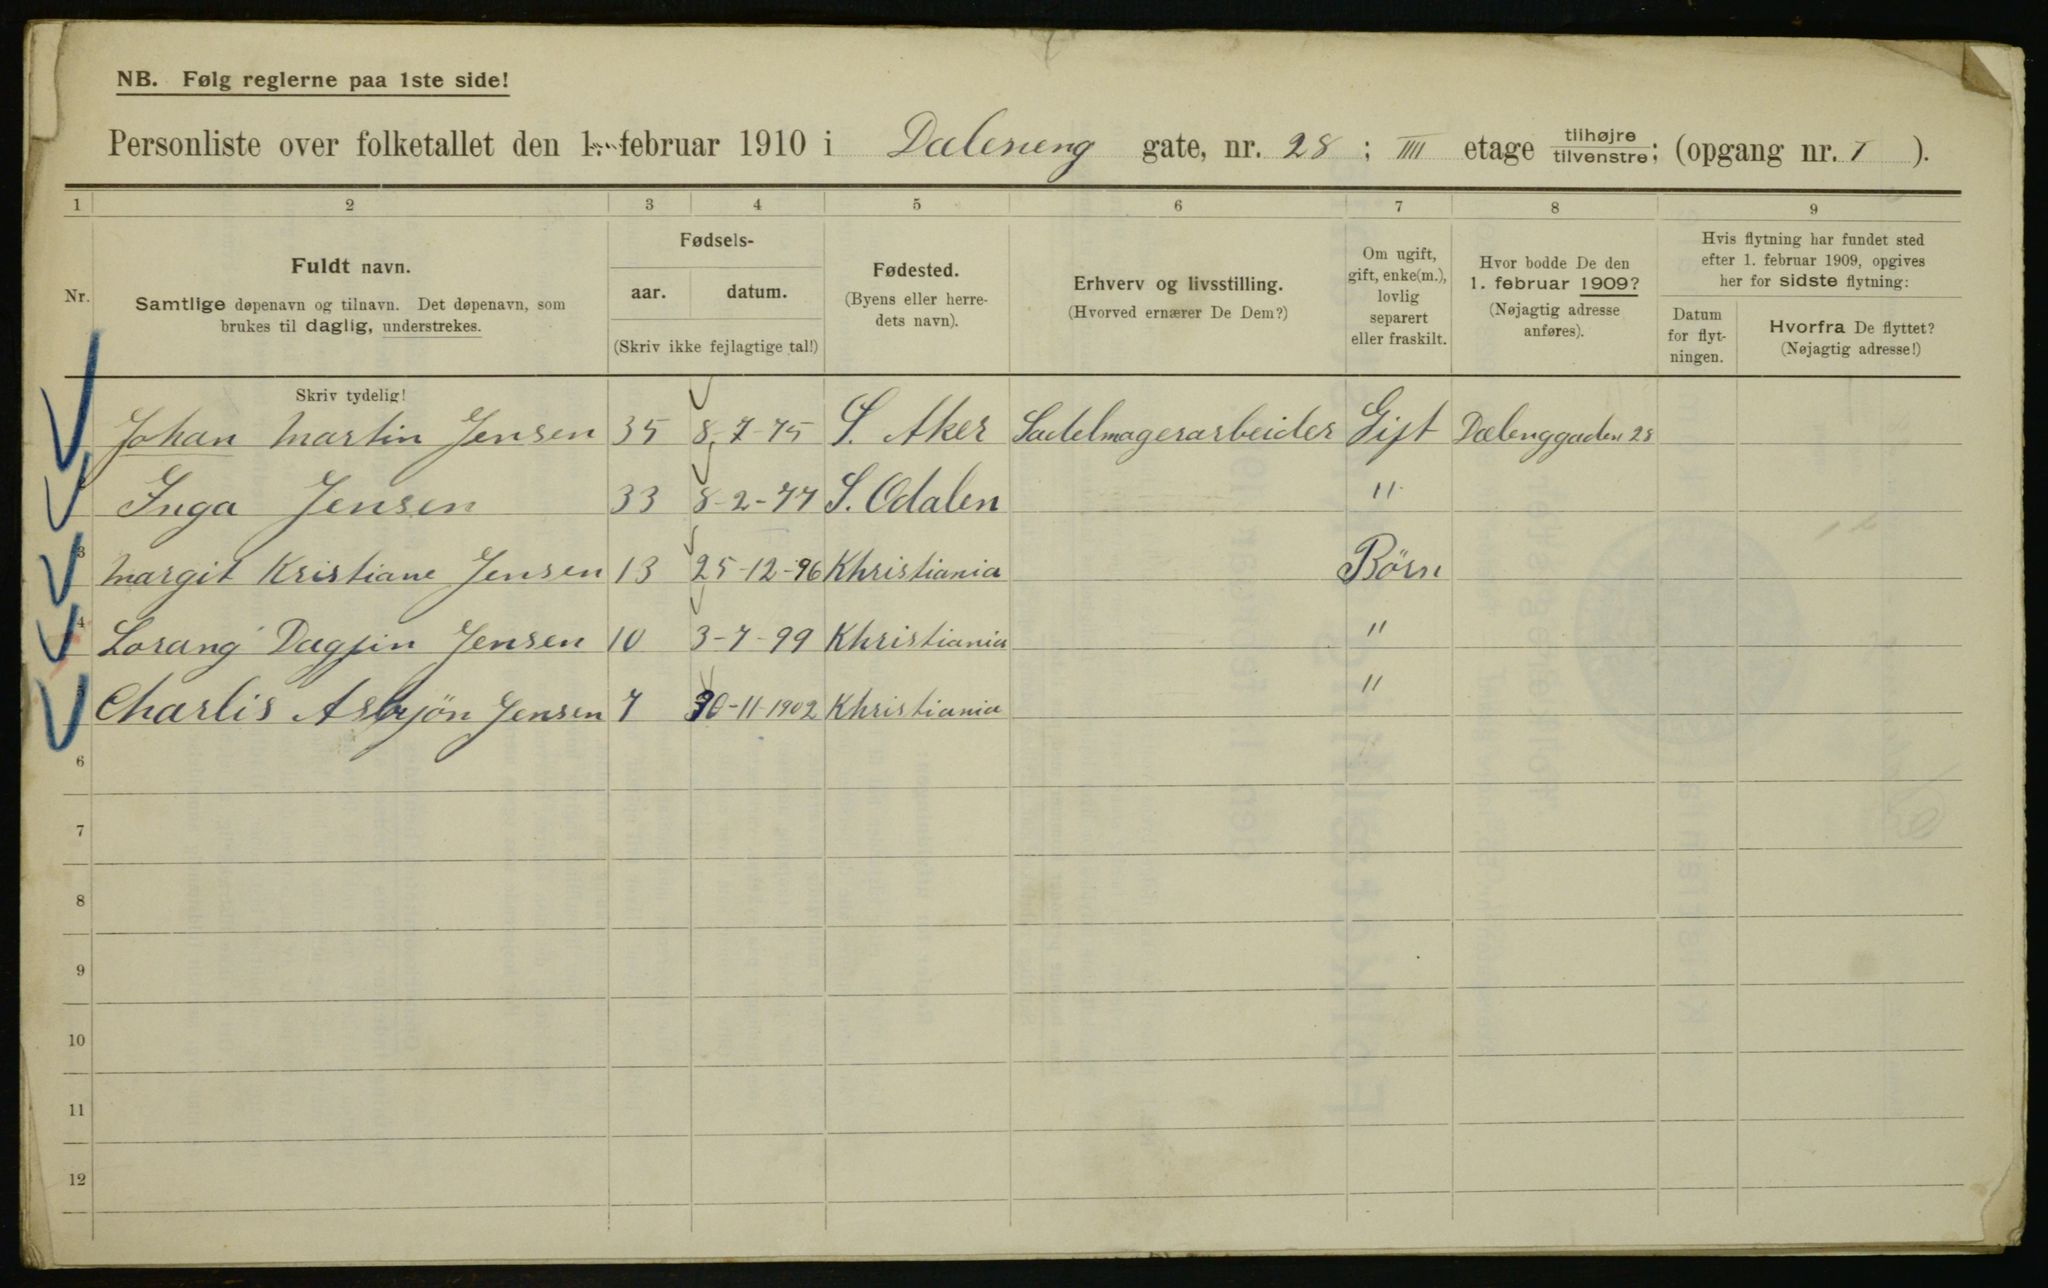 NB. Følg reglerne paa 1ste side!
Personliste over folketallet den 1. februar 1910 i Dæleneng gate, nr. 28; IIII etage tilhøjre/tilvenstre; (opgang nr. I ).
1 2 3 4 5 6 7 8 9
Nr.
Fuldt navn.
Samtlige døpenavn og tilnavn. Det døpenavn, som
brukes til daglig, understrekes.
Fødsels-
aar. datum.
(Skriv ikke fejlagtige tal!)
Fødested.
(Byens eller herre-
dets navn).
Erhverv og livsstilling.
(Hvorved ernærer De Dem?)
Om ugift,
gift, enke(m.),
lovlig
separert
eller fraskilt.
Hvor bodde De den
1. februar 1909?
(Nøjagtig adresse
anføres).
Hvis flytning har fundet sted
efter 1. februar 1909, opgives
her for sidste flytning:
Datum
for flyt-
ningen.
Hvorfra De flyttet?
(Nøjagtig adresse!)
Skriv tydelig!
Johan Martin Jensen 35 8-7-75 S. Aker Sadelmagerarbeider Gift Dælenggaden 28
Inga Jensen 33 8-2-77 S. Odalen "
3 Margit Kristiane Jensen 13 25-12-96 Khristiania Börn
4 Lorang Dagfin Jensen 10 3-7-99 Khristiania "
5 Charlis Asbjön Jensen 7 30-11-1902 Khristiania "
6
7
8
9
10
11
12